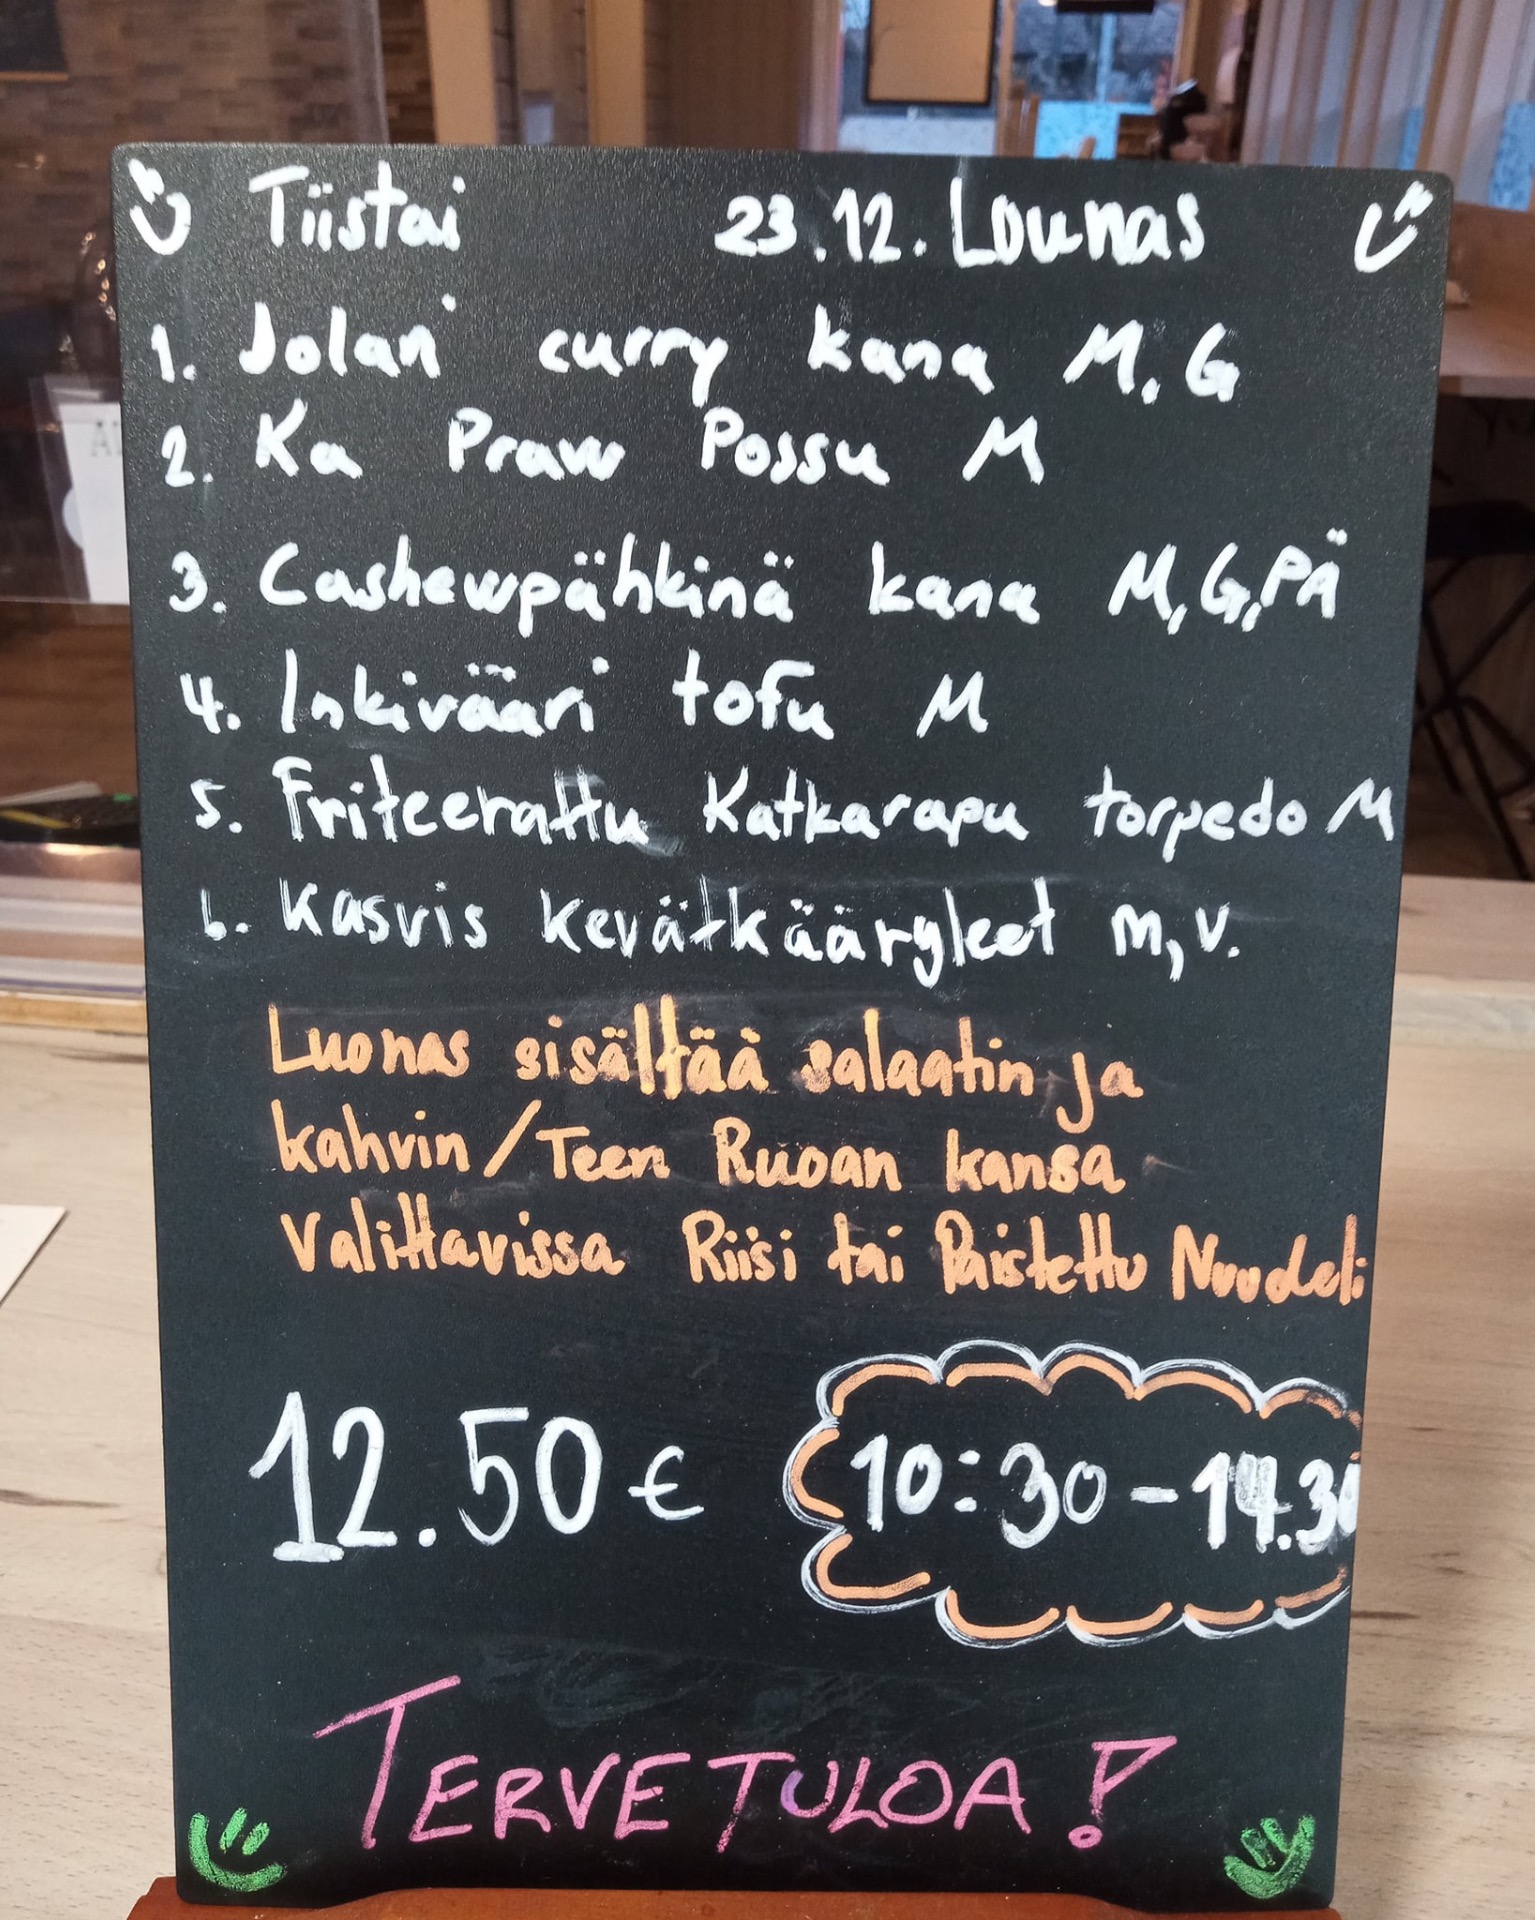 Tiistai 23.12. Lounas
1. Jolari curry kana M, G
2. Ka Praw Possu M
3. Cashewpähkinä kana M, G, PÄ
4. Inkivääri tofu M
5. Friteerattu Katkarapu torpedo M
6. Kasvis kevätkääryleet m, v.
Luonas sisältää salaatin ja
kahvin/Teen Ruoan kansa
Valittavissa Riisi tai Paistettu Nuudeli
12.50 € 10:30 - 14.30
TERVETULOA!